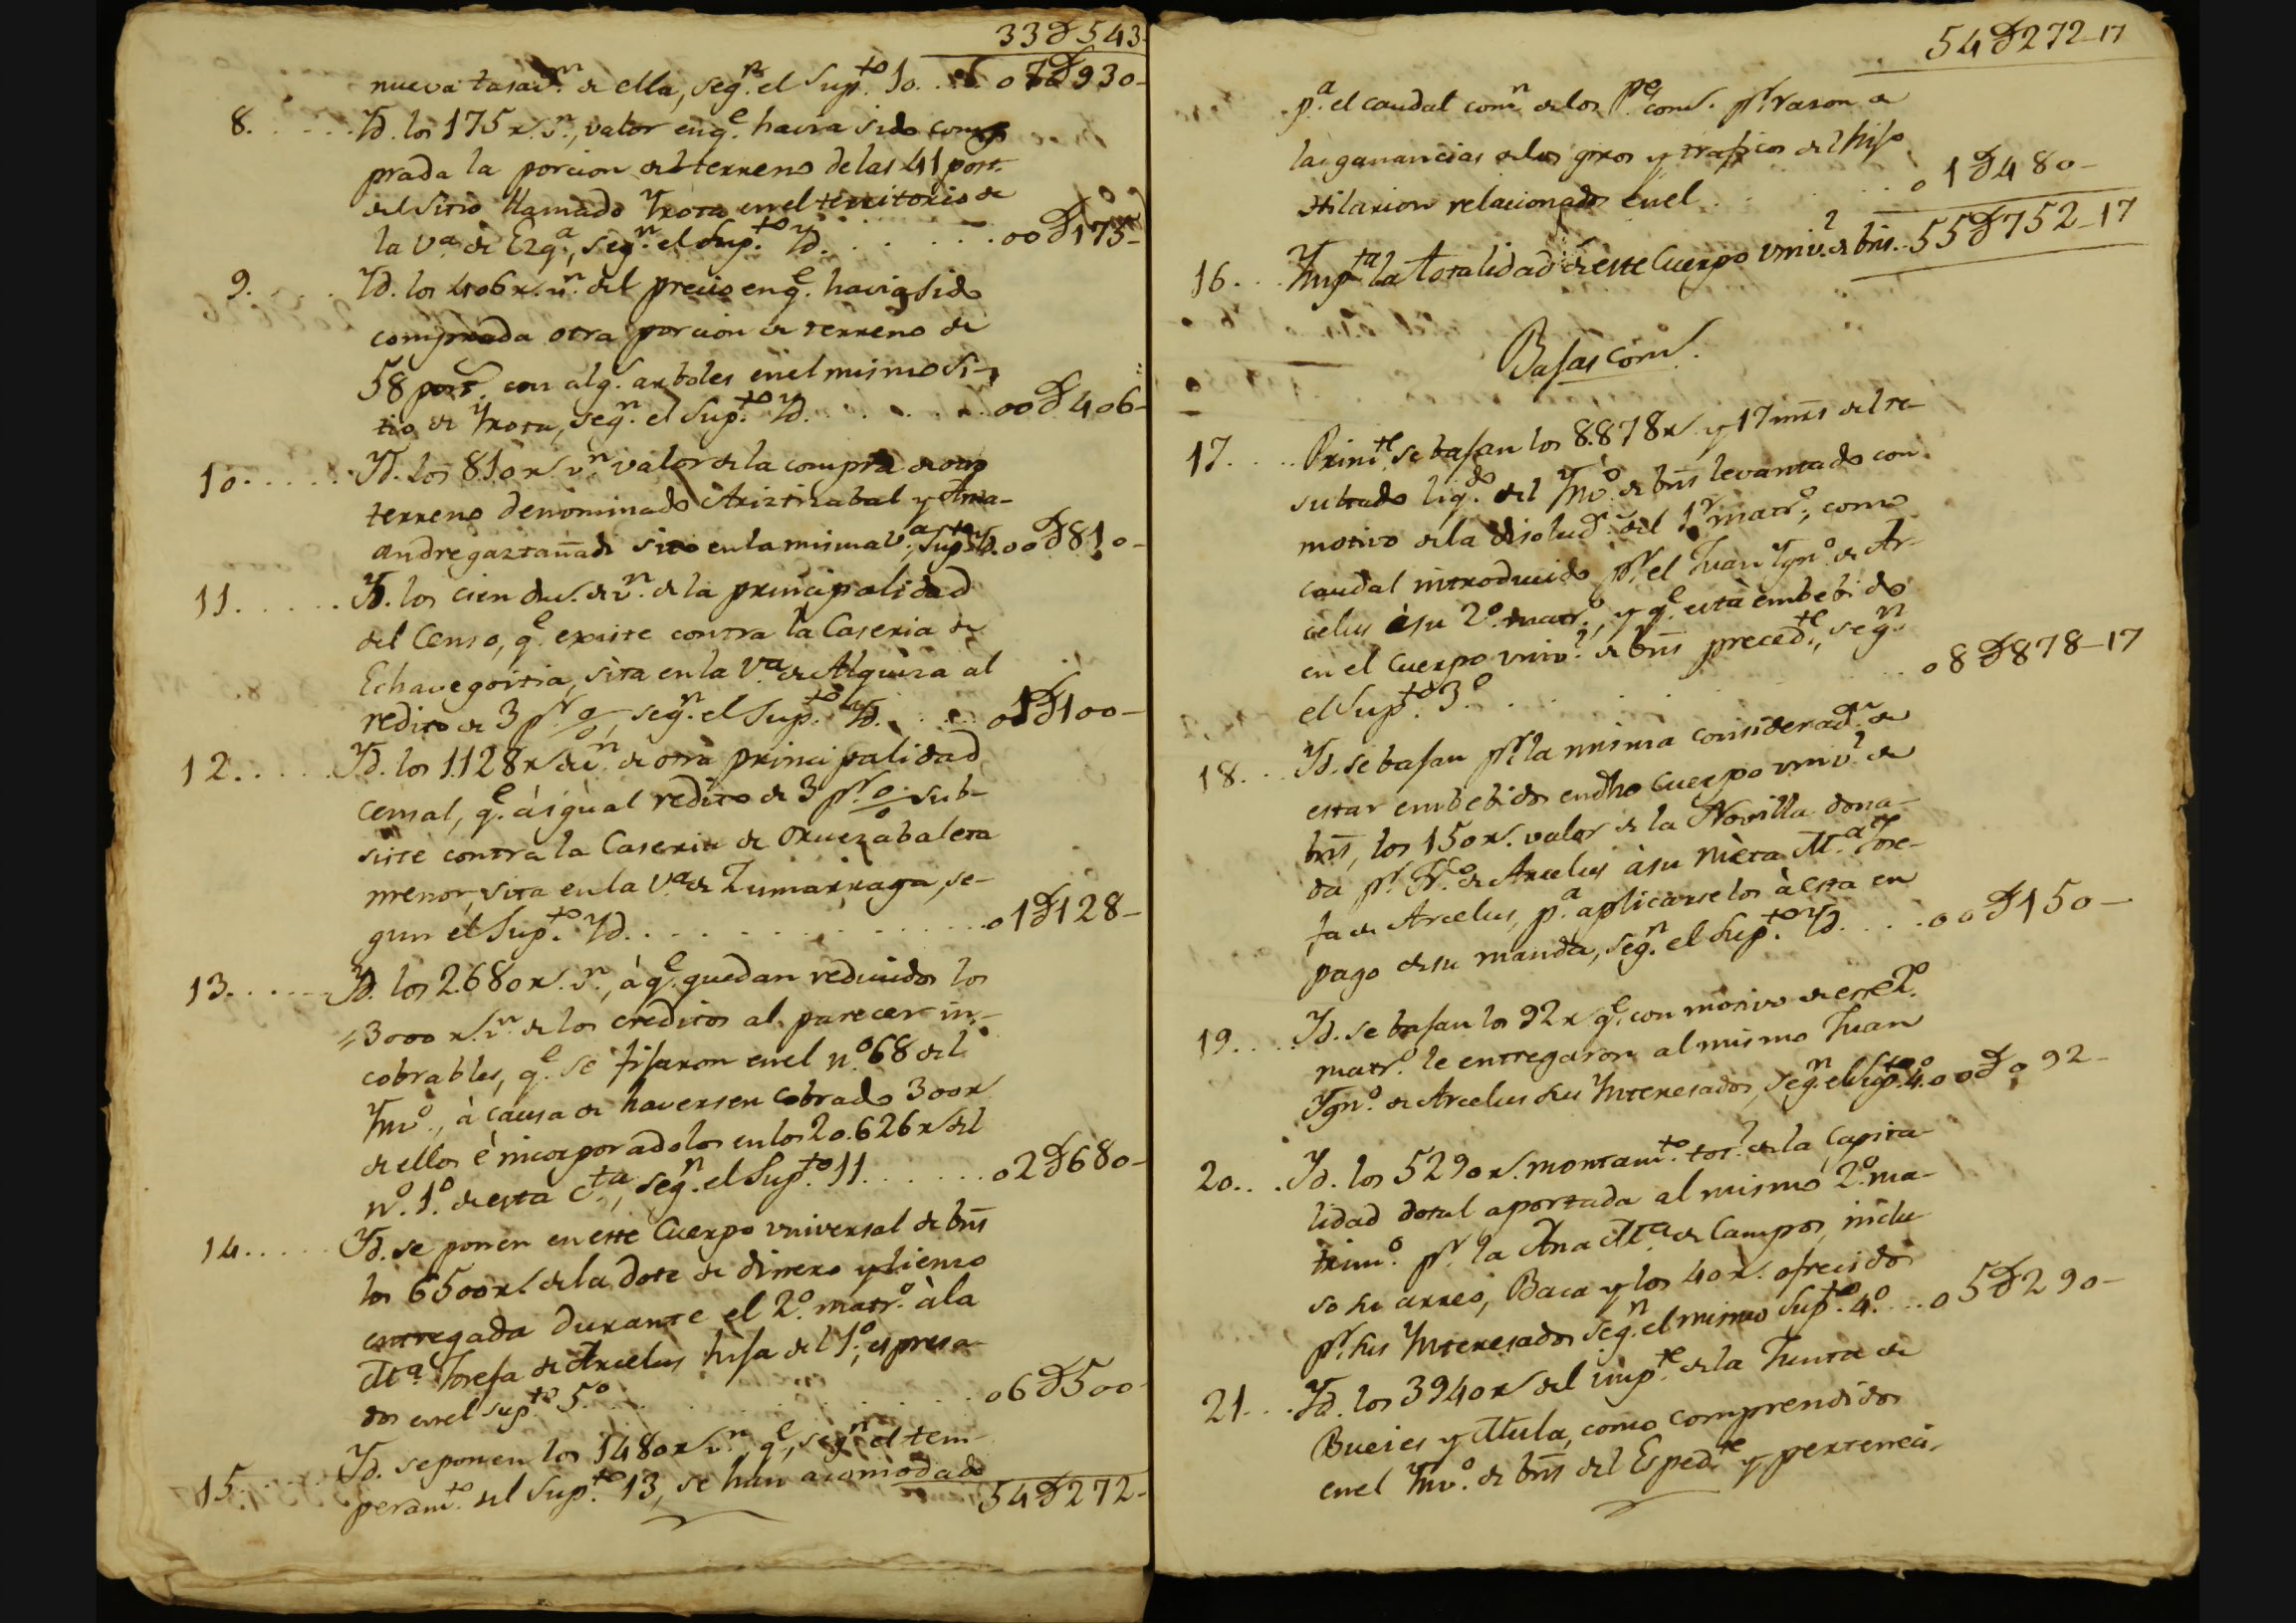 33D543-
nueva tasaon. de ella, segn. el Supto. 10. . . 07D930-
8. . . . . . Yd. los 175 rs. vn., valor en qe. havia sido com-
prada la porcion del terreno de las 41 post.
del sitio llamado Yrora en el territorio de
la va. de Ezqa., segn. el Supto. Yd. . . . . . . 00D175-
9. . . . . Yd. los 406 rs. vn. del precio en qe. havia sido
comprada otra porcion de terreno de
58 post. con algs. arboles en el mismo si-
tio de Yrora, segn. el Supto. Yd. . . . . . . 00D406-
10. . . . . . Yd. los 810 rs. vn. valor de la compra de otro
terreno denominado Ariztizabal y Ama-
andregaztañadi sito en la misma va., Supto. Yd. 00D810-
11. . . . . . Yd. los cien dus. de vn. de la principalidad
del Censo, qe. existe contra la Caseria de
Echavegoitia, sita en la va. de Alquiza al
redito de 3 pr. %, segn. el Supto. Yd. . . . 01D100-
12. . . . . Yd. los 1128 rs. de vn. de otra principalidad
censal, qe. à igual redito de 3 pr. % sub-
siste contra la Caseria de Oruezabaleta
menor, sita en la va. de Zumarraga, se-
gun el Supto. Yd. . . . . . . . . . . . . 01D128-
13. . . . . Yd. los 2.680 rs. vn., à qe. quedan reducidos los
3000 rs. vn. de los creditos al parecer in-
cobrables, qe. se fijaron en el no. 68 del
Ymvo., à causa de haversen cobrado 300 rs
de ellos è incorporadolos en los 20.626 rs del
no. 1o. de esta Cta., segn. el Supto. 11. . . . . . . 02D680-
14. . . . . Yd. se ponen en este Cuerpo universal de bns
los 6500 rs. de la dote de dinero y lienzo
entregada durante el 2o. matro. à la
Ma. Josefa de Arcelus hija del 1o., espresa-
dos en el supto. 5o. . . . . . . . . . . . 06D500-
15. . . . . Yd. se ponen los 1480 rs vn., qe. segn. el tem-
peramto. del Supto. 13, se han acomodado
54D272-
54D272-17
pa. el caudal comn. de los Pes. coms. pr. razon de
las ganancias de los giros y traficos del hijo
Hilarion relacionados en el . . . . . . . . . 01D480-
16. . . Ympta. la totalidad de este Cuerpo univl. de bns. . 55D752-17
Bajas coms.
17. . . . . Primte. se bajan los 8.878 rs. y 17 mrs del re-
sultado liqdo. del Ymvo. de bns levantado con
motivo de la disolud. del 1r. matro., como
caudal introducido pr. el Juan Ygno. de Ar-
celus à su 2o. matro., y qe. està embebido
en el Cuerpo univl. de bns precedte., segn.
el Supto. 3o. . . . . . . . . . . . . 08D878-17
18. . . Yd. se bajan pr. la misma considerad. de
estar embebidos en dho Cuerpo univl. de
bns, los 150 rs. valor de la Novilla dona-
da pr. Fr. de Arcelus à su nieta Ma. Jose-
fa de Arcelus, pa. aplicarselos à esta en
pago de su manda, segn. el Supto. Yd. . . . . 00D150-
19. . . . Yd. se bajan los 92 rs qe. con motivo de este 2o.
matro. le entregaron al mismo Juan
Ygno. de Arcelus sus Ynteresados, segn. el Supto. 4o. 00D092-
20. . . Yd. los 5290 rs. montamto. totl. de la Capita-
lidad dotal aportada al mismo 2o. ma-
trimo. pr. la Ana Ma. de Campos, inclu-
so su arreo, Baca y los 40 rs. ofrecidos
pr. sus Ynteresados segn. el mismo Supto. 4o. . . . 05D290-
21. . . Yd. los 3940 rs del impte. de la Junta de
Bueies y Mula, como comprendidos
en el Ymvo. de bns del Espedte. y pertenecn.